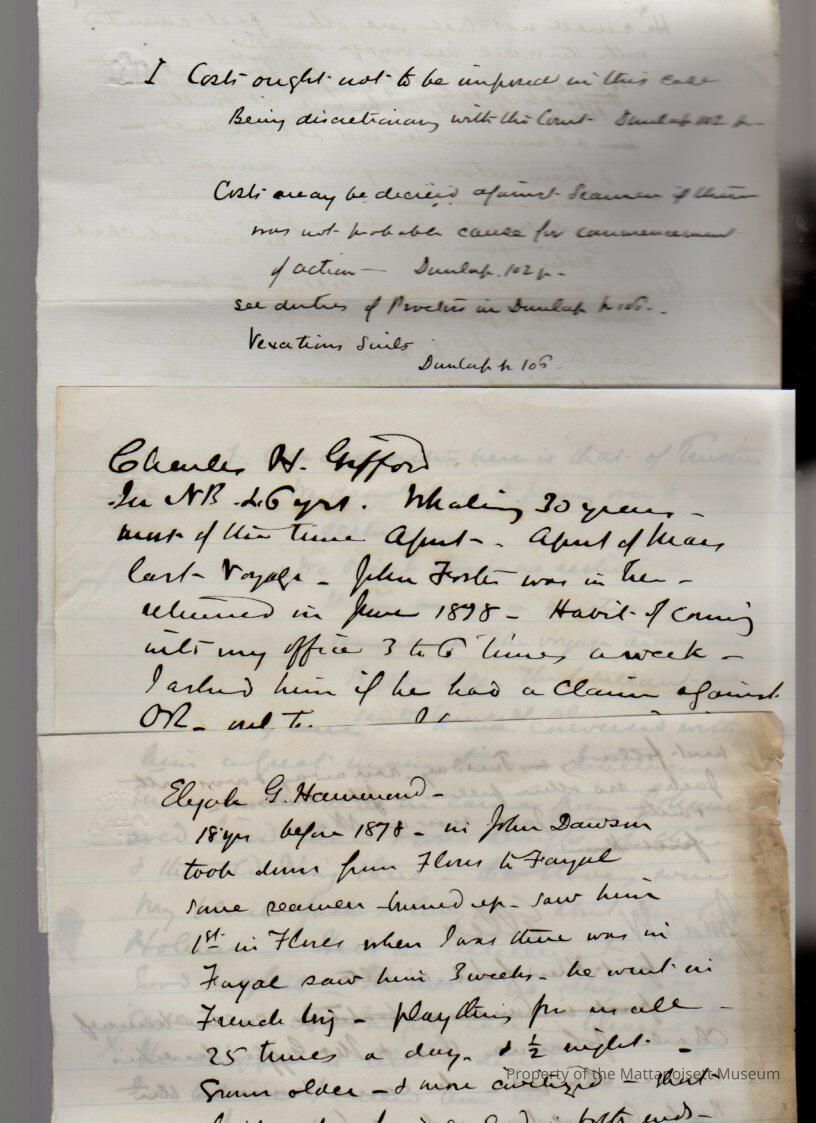 I Costs ought not to be imposed in this case
Being discretionary with the Court Dunlap 102 p
Costs may be decried against Seamen if there
was not probable cause for commencement
of action — Dunlap. 102 p -
see duties of Proctors in Dunlap p 106 -
Vexatious Suits
Dunlap p 106
Charles H. Gifford
In NB 46 yrs. Whaling 30 years -
most of the time Agent - Agent of Mars
last Voyage - John Foster was in her -
returned in June 1898 - Habit of coming
into my office 3 to 6 times a week -
I asked him if he had a Claim against
Elijah G. Hammond -
18 yrs before 1878 - in John Dawson
took him from Flores to Fayal
some seamen - saw him
1st in Flores when I was there was in
Fayal saw him 3 weeks - he went in
French brig - plaything for us all -
25 times a day - & ½ night -
Grown older - & more civilized - that
Property of the Mattapoisett Museum